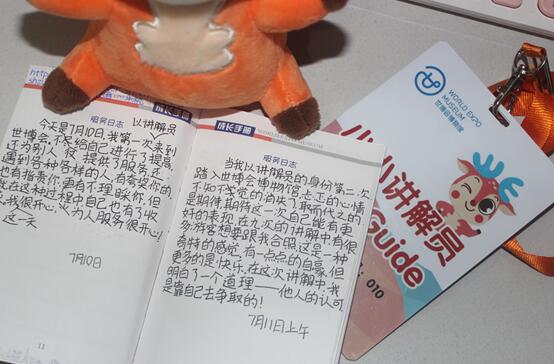 http
服务日志
今天是7月10日,我第一次来到
世博会,不尽给自己进行了提高,
还为别人提供了服务,还
遇到各种各样的人,有夸奖你的
也有指责你,更有不理睬你,但
在这种过程中自己也有了收
我很开心,为人服务很开心!
这一天
7月10日
11
成长手册
WORLD EXPO MUSEUM
服务日志
当我以讲解员的身份第二次
踏入世博会博物馆,忐忑的心情
不知不觉的消失了,取而代之的
是期待,期待这一次自己能有更
好的表现。在九次的讲解中,有很
多游客想要跟我合照,这是一种
奇特的感觉,有一点点的自豪,但
更多的是快乐,在这次讲解中,我
明白了一个道理——他人的认可
是靠自己去争取的!
7月11日上午
WORLD EXPO
MUSEUM
世博会博物馆
小小讲解员
Guide
: 010